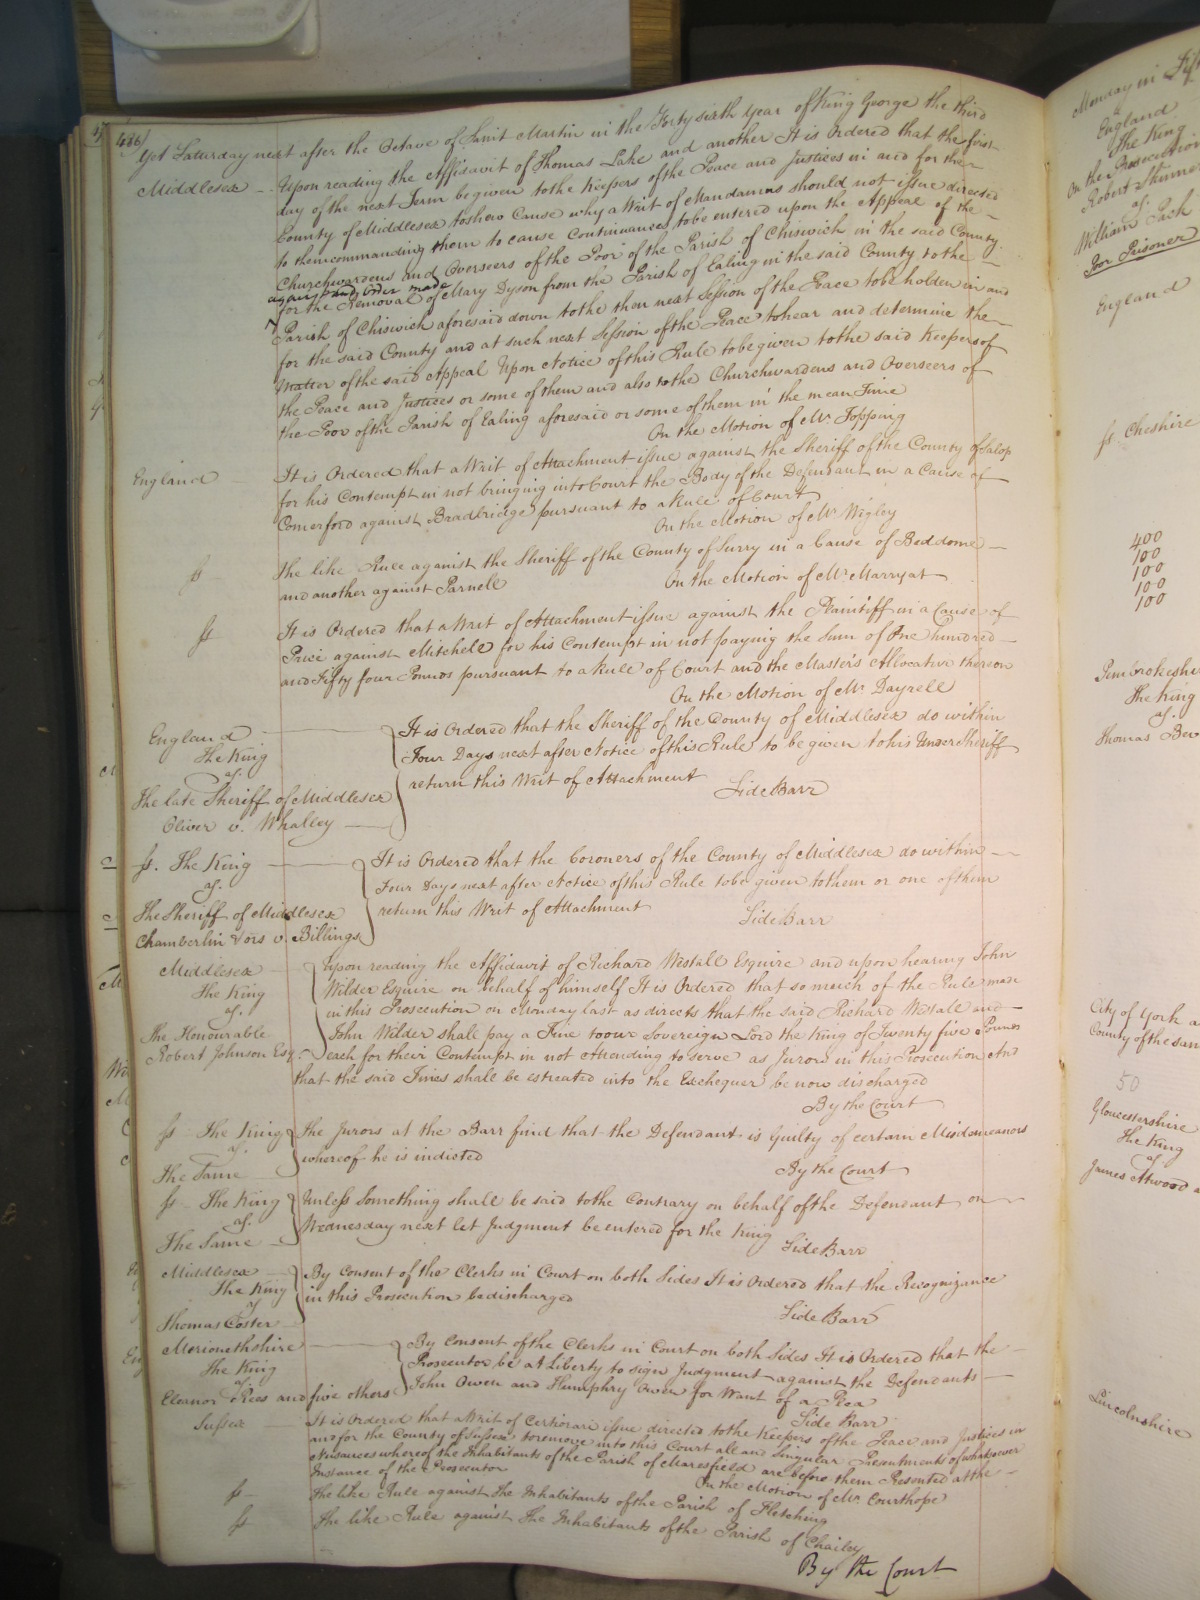 486
Yet Saturday next after the Octave of Saint Martin in the Forty sixth year of King George the third
Middlesex Upon reading the Affidavit of Thomas Lake and another It is Ordered that the first
day of the next Term be given to the Keepers of the Peace and Justices in and for the
County of Middlesex to shew Cause why a Writ of Mandamus should not issue directed
to them commanding them to cause Continuances to be entered upon the Appeal of the
Churchwardens and Overseers of the Poor of the Parish of Chiswick in the said County
against an Order made
for the Removal of Mary Dyson from the Parish of Ealing in the said County to the
Parish of Chiswick aforesaid down to the then next Session of the Peace to be holden in and
for the said County and at such next Session of the Peace to hear and determine the
Matter of the said Appeal Upon Notice of this Rule to be given to the said Keepers of
the Peace and Justices or some of them and also to the Churchwardens and Overseers of
the Poor of the Parish of Ealing aforesaid or some of them in the mean Time
On the Motion of Mr. Topping
England It is Ordered that a Writ of Attachment issue against the Sheriff of the County of Salop
for his Contempt in not bringing into Court the Body of the Defendant in a Cause of
Comerford against Bradbridge pursuant to a Rule of Court
On the Motion of Mr. Wigley
ss The like Rule against the Sheriff of the County of Surry in a Cause of Beddome
and another against Parnell On the Motion of Mr. Marryat
ss It is Ordered that a Writ of Attachment issue against the Plaintiff in a Cause of
Price against Mitchell for his Contempt in not paying the Sum of One hundred
and Fifty four Pounds pursuant to a Rule of Court and the Master's Allocatur thereon
On the Motion of Mr. Dayrell
England
The King
agt.
The late Sheriff of Middlesex
Oliver v. Whalley
It is Ordered that the Sheriff of the County of Middlesex do within
Four Days next after Notice of this Rule to be given to his Under Sheriff
return this Writ of Attachment Side Barr
ss. The King
agt.
The Sheriff of Middlesex
Chamberlin & ors v. Billings
It is Ordered that the Coroners of the County of Middlesex do within
Four Days next after Notice of this Rule to be given to them or one of them
return this Writ of Attachment Side Barr
Middlesex
The King
agt.
The Honourable
Robert Johnson Esqr.
Upon reading the Affidavit of Richard Westall Esquire and upon hearing John
Wilder Esquire on behalf of himself It is Ordered that so much of the Rule made
in this Prosecution on Monday last as directs that the said Richard Westall and
John Wilder shall pay a Fine to our Sovereign Lord the King of Twenty five Pounds
each for their Contempt in not Attending to serve as Jurors in this Prosecution And
that the said Fines shall be estreated into the Exchequer be now discharged
By the Court
ss The King
agt.
The Same
The Jurors at the Barr find that the Defendant is Guilty of certain Misdemeanors
whereof he is indicted
By the Court
ss The King
agt.
The Same
Unless Something shall be said to the Contrary on behalf of the Defendant on
Wednesday next let Judgment be entered for the King
Side Barr
Middlesex
The King
agt
Thomas Coster
By Consent of the Clerks in Court on both Sides It is Ordered that the Recognizance
in this Prosecution be discharged
Side Barr
Merionethshire
The King
agt.
Eleanor Rees and five others
By Consent of the Clerks in Court on both Sides It is Ordered that the
Prosecutor be at Liberty to sign Judgment against the Defendants
John Owen and Humphry Owen for Want of a Plea
Side Barr
Sussex It is Ordered that a Writ of Certiorari issue directed to the Keepers of the Peace and Justices in
and for the County of Sussex to remove into this Court all and Singular Presentments of whatsoever
Nuisances whereof the Inhabitants of the Parish of Maresfield are before them Presented at the
Instance of the Prosecutor On the Motion of Mr. Courthope
ss The like Rule against The Inhabitants of the Parish of Fletching
ss The like Rule against The Inhabitants of the Parish of Chailey
By the Court
Monday in
England
The King
On the Prosecution
Robert
agt.
William Pack
Poor Prisoner
England
ss. Cheshire
400
100
100
100
100
Pembrokeshire
The King
agt.
Thomas
City of York
County of the same
50
Gloucestershire
The King
agt
James Atwood
Lincolnshire